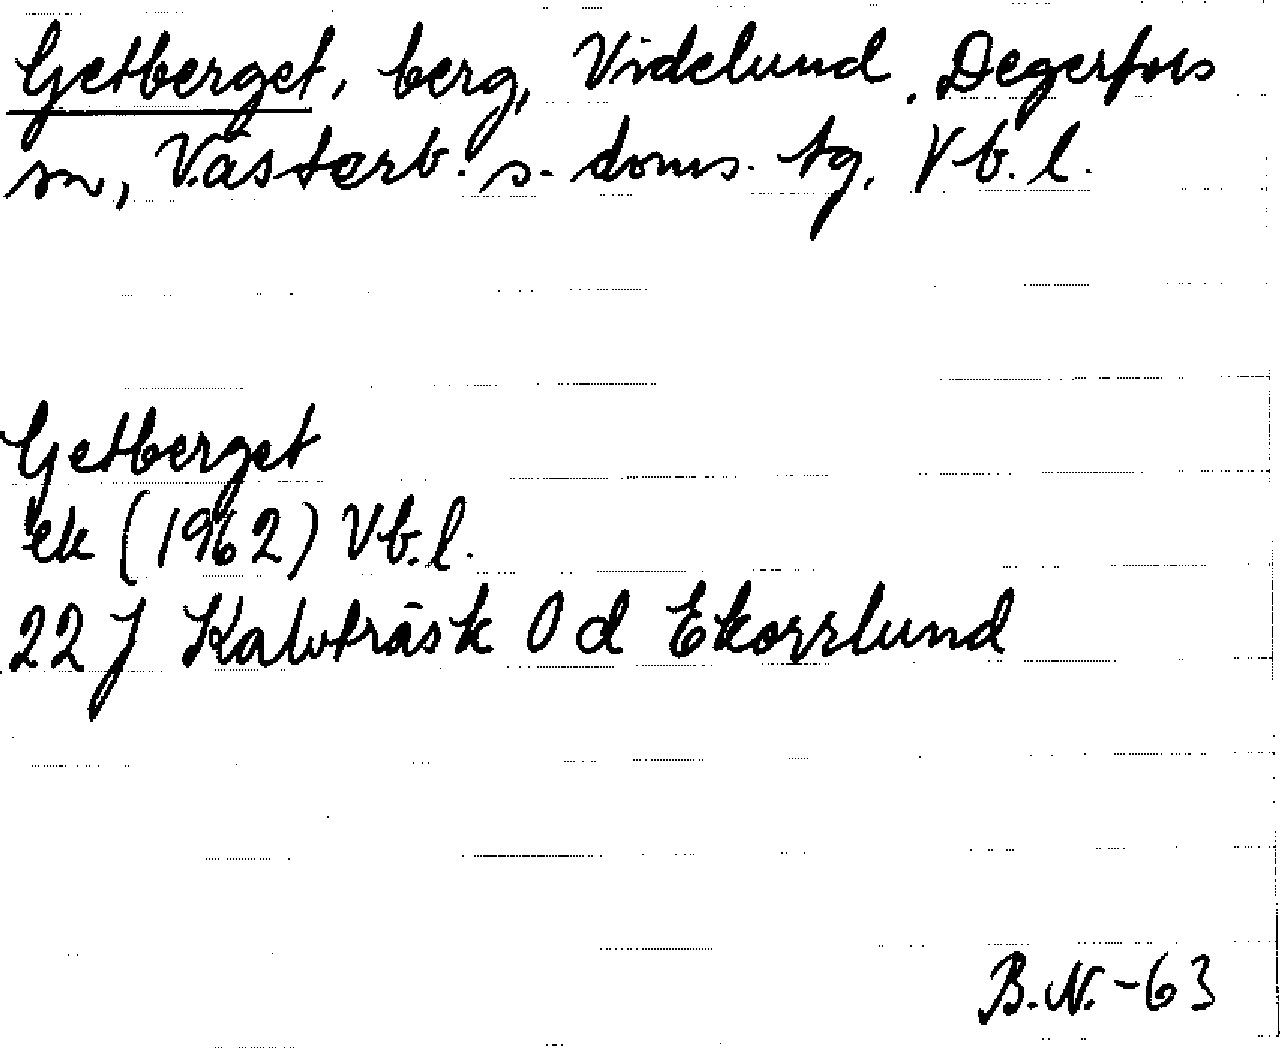 Getberget, berg, Videlund, Degerfors
sn, Västerb. s. doms. tg, Vb. l.
Getberget
ek (1962) Vb. l.
22 J Kalvträsk 0 d Ekorrlund
B.N. -63